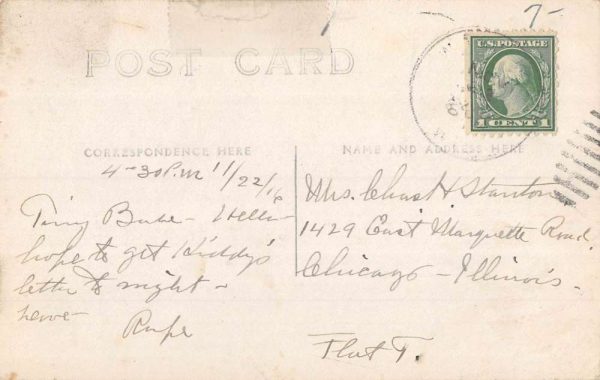 7-
POST CARD
U.S. POSTAGE
1 CENT 1
CORRESPONDENCE HERE
4-30 P.M 11/22/16
Tiny Babe - Hello -
hope to get Kiddy's
letter to night -
Rufe
NAME AND ADDRESS HERE
Mrs. Chas H Stanton
1429 East Marquette Road.
Chicago - Illinois -
Flat